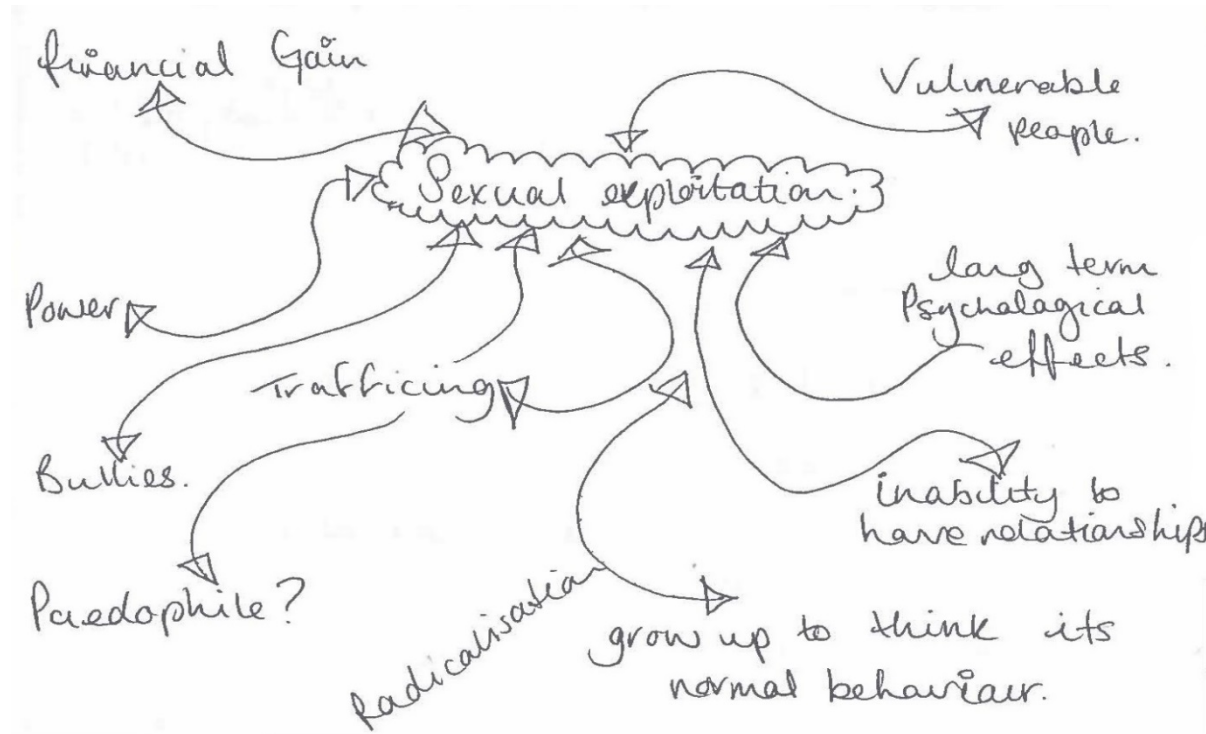 financial Gain
Vulnerable
people.
Sexual exploitation.
Power
long term
Psychological
effects.
Trafficing
Bullies.
inability to
have relationships
Paedophile?
Radicalisation
grow up to think its
normal behaviour.